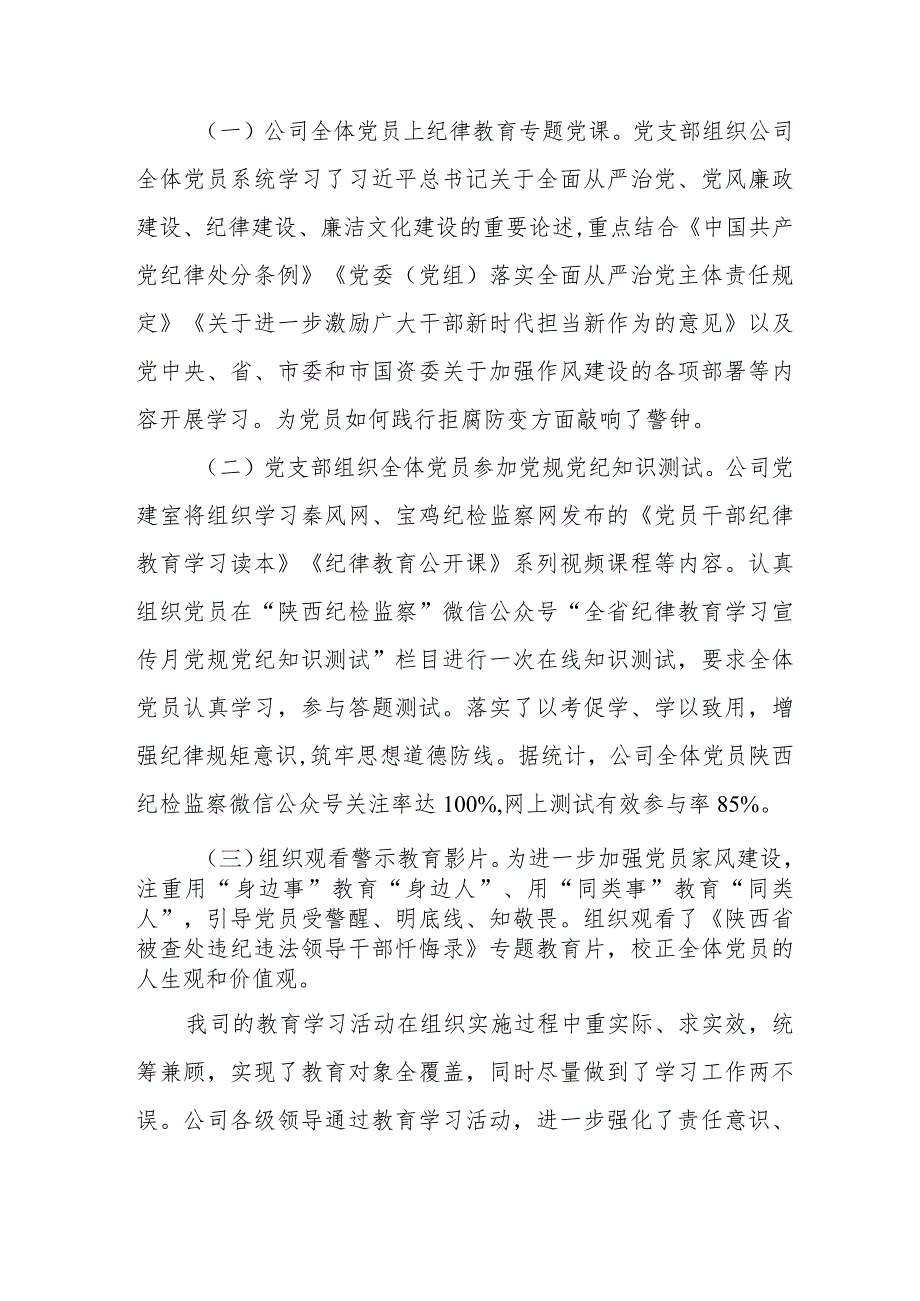 （一）公司全体党员上纪律教育专题党课。党支部组织公司
全体党员系统学习了习近平总书记关于全面从严治党、党风廉政
建设、纪律建设、廉洁文化建设的重要论述,重点结合《中国共产
党纪律处分条例》《党委（党组）落实全面从严治党主体责任规
定》《关于进一步激励广大干部新时代担当新作为的意见》以及
党中央、省、市委和市国资委关于加强作风建设的各项部署等内
容开展学习。为党员如何践行拒腐防变方面敲响了警钟。
（二）党支部组织全体党员参加党规党纪知识测试。公司党
建室将组织学习秦风网、宝鸡纪检监察网发布的《党员干部纪律
教育学习读本》《纪律教育公开课》系列视频课程等内容。认真
组织党员在“陕西纪检监察”微信公众号“全省纪律教育学习宣
传月党规党纪知识测试”栏目进行一次在线知识测试，要求全体
党员认真学习，参与答题测试。落实了以考促学、学以致用，增
强纪律规矩意识,筑牢思想道德防线。据统计，公司全体党员陕西
纪检监察微信公众号关注率达 100%,网上测试有效参与率 85%。
（三）组织观看警示教育影片。为进一步加强党员家风建设，
注重用“身边事”教育“身边人”、用“同类事”教育“同类
人”，引导党员受警醒、明底线、知敬畏。组织观看了《陕西省
被查处违纪违法领导干部忏悔录》专题教育片，校正全体党员的
人生观和价值观。
我司的教育学习活动在组织实施过程中重实际、求实效，统
筹兼顾，实现了教育对象全覆盖，同时尽量做到了学习工作两不
误。公司各级领导通过教育学习活动，进一步强化了责任意识、